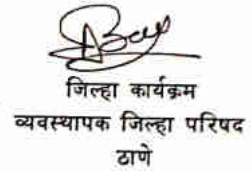 जिल्हा कार्यक्रम
व्यवस्थापक जिल्हा परिषद
ठाणे